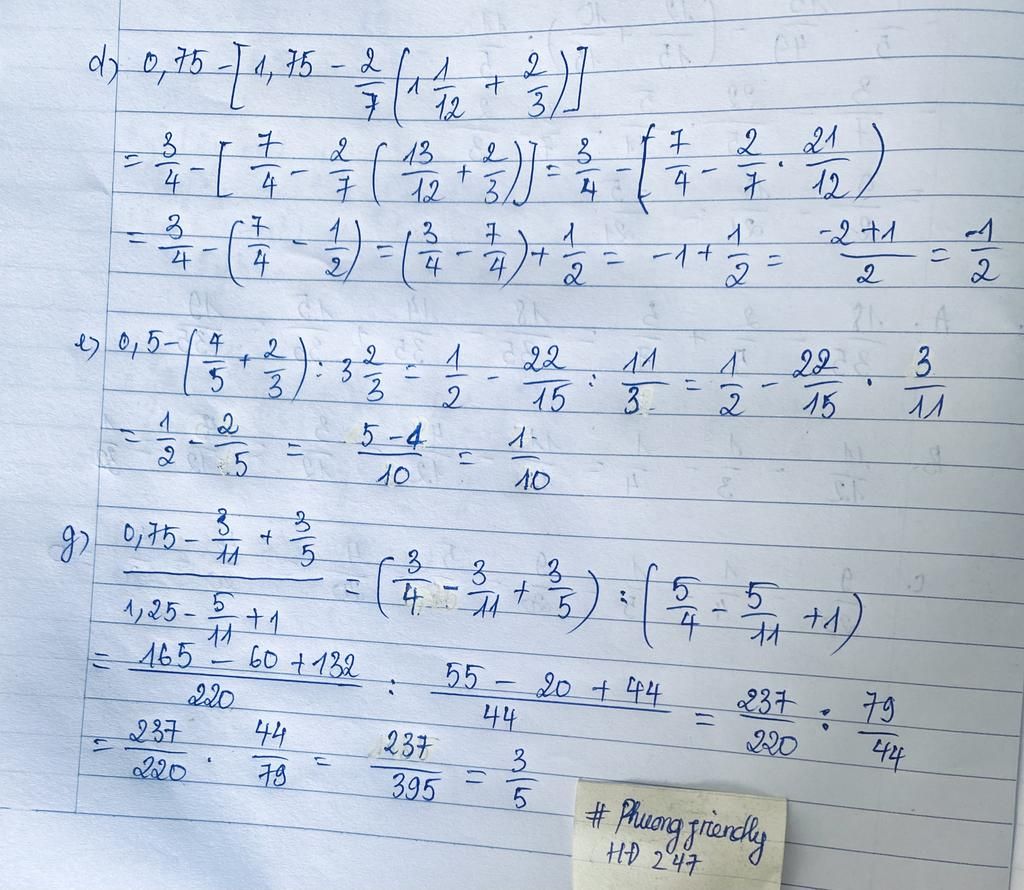 d) 0,75 - [1,75 - 2/7 (1 1/12 + 2/3)]
= 3/4 - [7/4 - 2/7 (13/12 + 2/3)] = 3/4 - (7/4 - 2/7 . 21/12)
= 3/4 - (7/4 - 1/2) = (3/4 - 7/4) + 1/2 = -1 + 1/2 = (-2+1)/2 = -1/2
e) 0,5 - (4/5 + 2/3) : 3 2/3 = 1/2 - 22/15 : 11/3 = 1/2 - 22/15 . 3/11
= 1/2 - 2/5 = (5-4)/10 = 1/10
g) (0,75 - 3/11 + 3/5)/(1,25 - 5/11 + 1) = (3/4 - 3/11 + 3/5) : (5/4 - 5/11 + 1)
= (165 - 60 + 132)/220 : (55 - 20 + 44)/44 = 237/220 : 79/44
= 237/220 . 44/79 = 237/395 = 3/5
# Phuongfriendly
HĐ 247